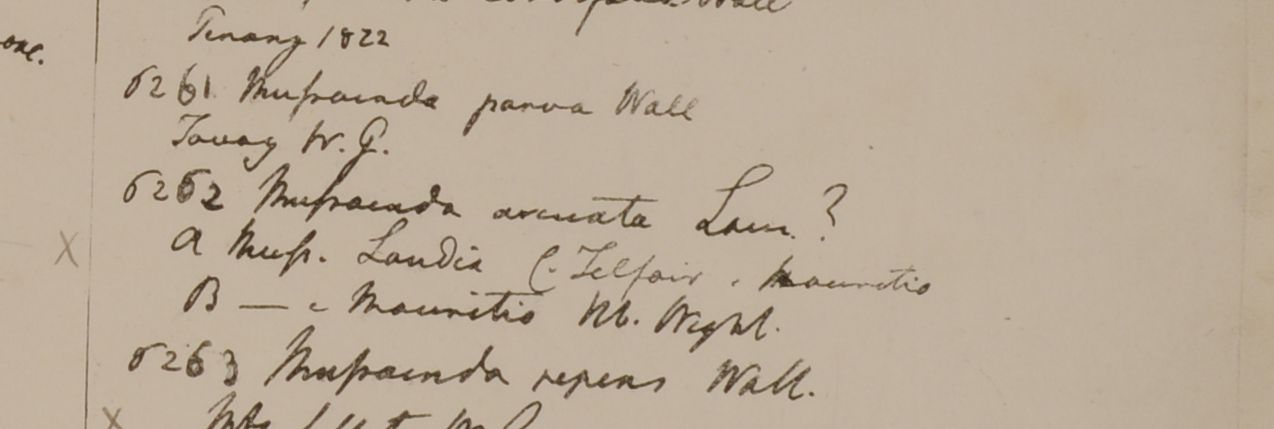 Wall
onc.
Penang 1822
6261 Mussaenda parva Wall
Tavoy W. G.
6262 Mussaenda arcuata Lam. ?
A Muss. Landia C. Telfair e Mauritio
B — e Mauritio Hb. Wight.
6263 Mussaenda repens Wall.